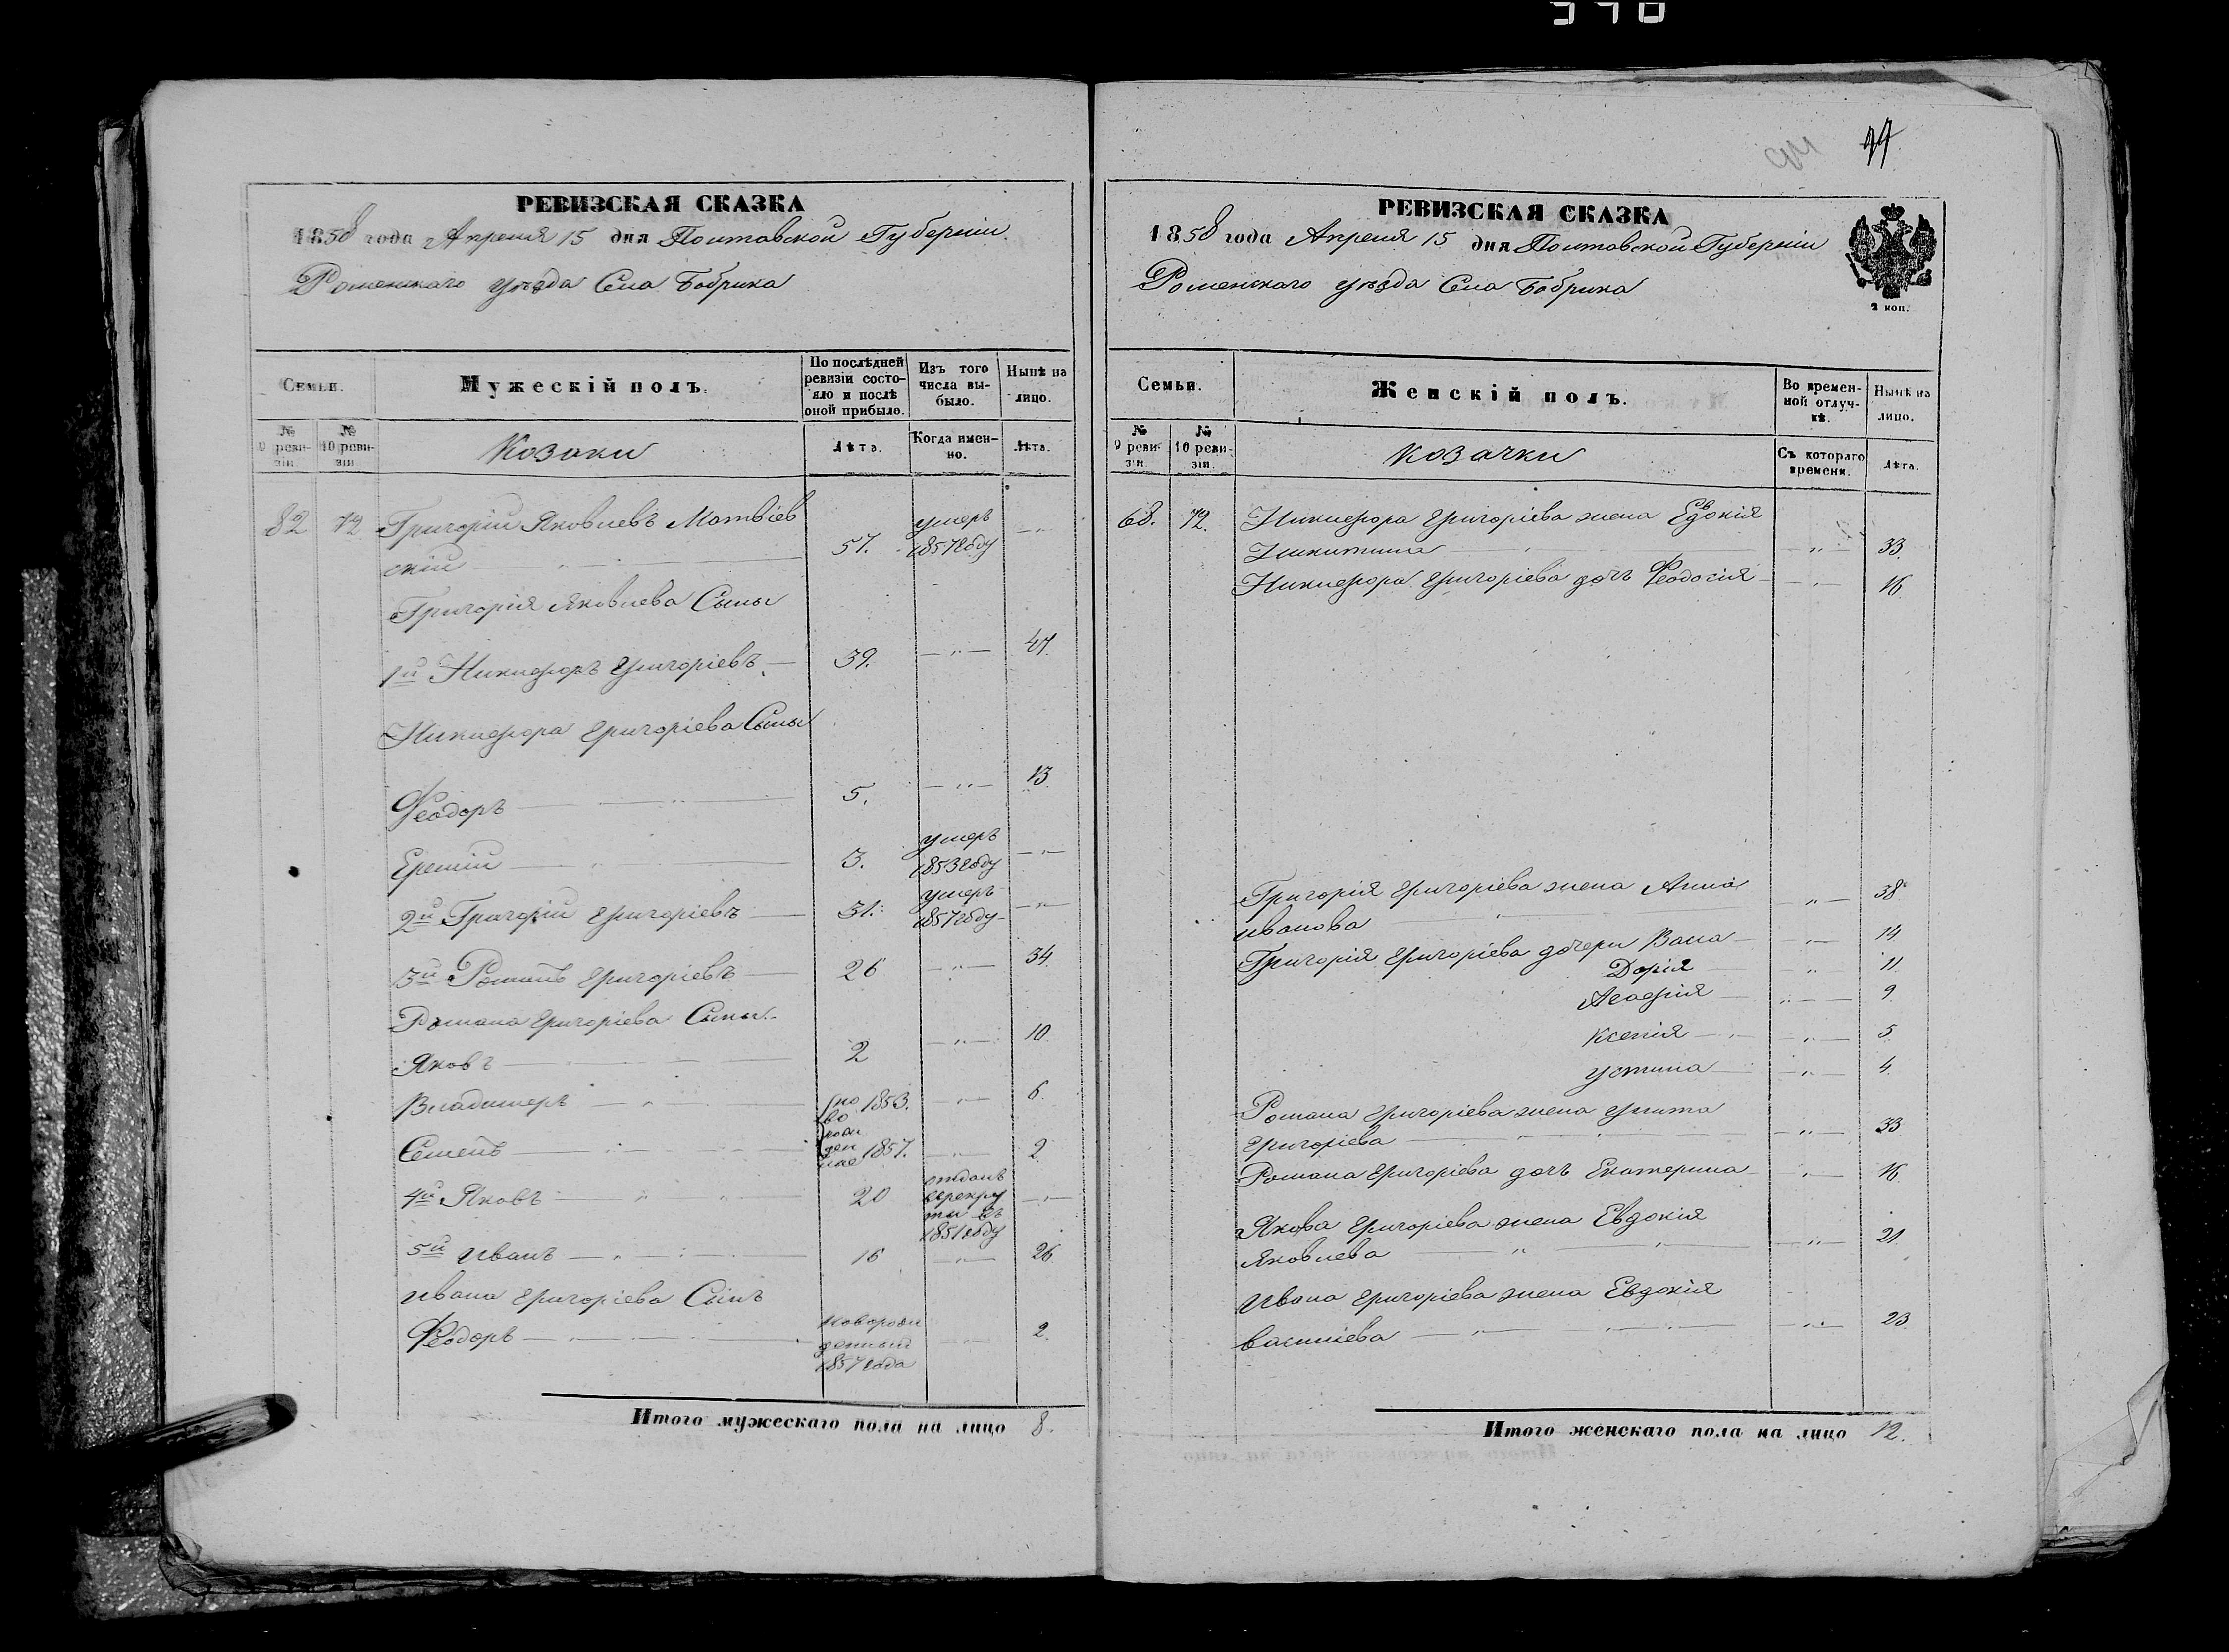 94 77
РЕВИЗСКАЯ СКАЗКА
1858 года Апреля 15 дня Полтавской Губерніи.
Роменскаго уѣзда Села Бобрика
Семьи.
Мужескій полъ.
По послѣдней ревизіи состояло и послѣ оной прибыло.
Изъ того числа выбыло.
Нынѣ на лицо.
№ 9 ревизіи.
№ 10 ревизіи.
Козаки
Лѣта.
Когда именно.
Лѣта.
82 72 Григорій Яковлевъ Матвіев
скій 57. умеръ 1857 году
Григорія Яковлева Сыны
1й Никифоръ Григоріевъ 39. 47.
Никифора Григоріева Сыны
Феодоръ 5. 13.
Еремій 3. умеръ 1853 году
2й Григорій Григоріевъ 31. умеръ 1857 году
3й Романъ Григоріевъ 26 34.
Романа Григоріева Сыны
Яковъ 2 10.
Владимеръ 1853. 6.
Семенъ 1857. 2.
4й Яковъ 20 отданъ в рекруты въ 1851 году
5й Иванъ 18 26.
Ивана Григоріева Сынъ
Феодоръ новорожденный 1857 года 2.
Итого мужескаго пола на лицо 8.
РЕВИЗСКАЯ СКАЗКА
1858 года Апреля 15 дня Полтавской Губерніи
Роменскаго уѣзда Села Бобрика
2 коп.
Семьи.
Женскій полъ.
Во временной отлучкѣ.
Нынѣ на лицо.
№ 9 ревизіи.
№ 10 ревизіи.
Козачки
Съ котораго времени.
Лѣта.
68. 72. Никифора Григоріева жена Евдокія
Никитина 33.
Никифора Григоріева дочь Феодосія 16.
Григорія Григоріева жена Анна
Иванова 38
Григорія Григоріева дочери Васа 14.
Дарія 11.
Агафія 9.
Ксенія 5.
Устина 4.
Романа Григоріева жена Улита
Григоріева 33
Романа Григоріева дочь Екатерина 16.
Якова Григоріева жена Евдокія
Яковлева 21.
Ивана Григоріева жена Евдокія
Василіева 23.
Итого женскаго пола на лицо 12.